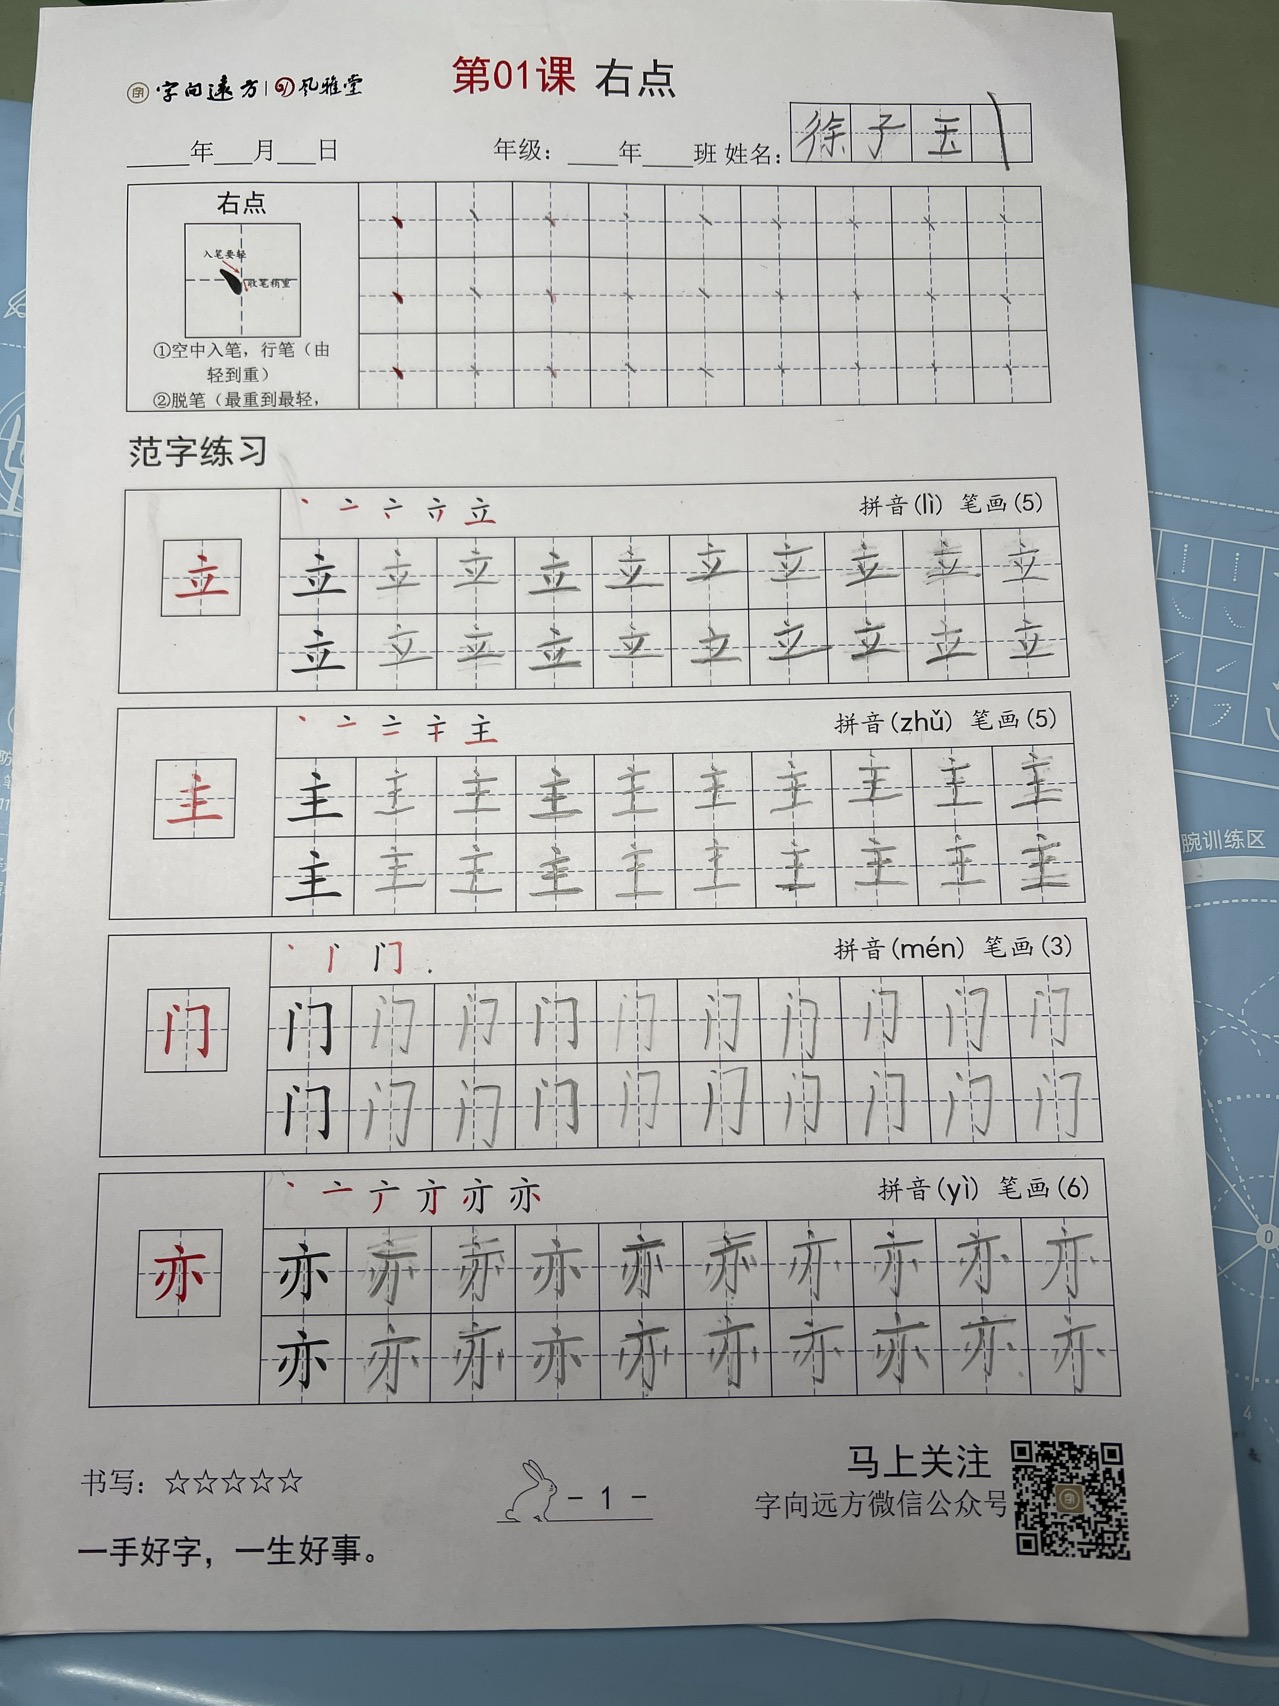 字向远方 风雅堂
第01课 右点
____年___月___日 年级：____年____班 姓名：徐子玉
右点
入笔要轻
收笔稍重
①空中入笔，行笔（由
轻到重）
②脱笔（最重到最轻，
范字练习
拼音(lì) 笔画(5)
立 立 立 立 立 立 立 立 立 立 立
立 立 立 立 立 立 立 立 立 立
拼音(zhǔ) 笔画(5)
主 主 主 主 主 主 主 主 主 主 主
主 主 主 主 主 主 主 主 主 主
拼音(mén) 笔画(3)
门 门 门 门 门 门 门 门 门 门 门
门 门 门 门 门 门 门 门 门 门
拼音(yì) 笔画(6)
亦 亦 亦 亦 亦 亦 亦 亦 亦 亦 亦
亦 亦 亦 亦 亦 亦 亦 亦 亦 亦
书写：☆☆☆☆☆
- 1 -
马上关注
字向远方微信公众号
一手好字，一生好事。
腕训练区
0
4